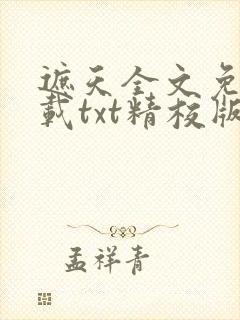 遮天全文免
载txt精校版
孟祥青